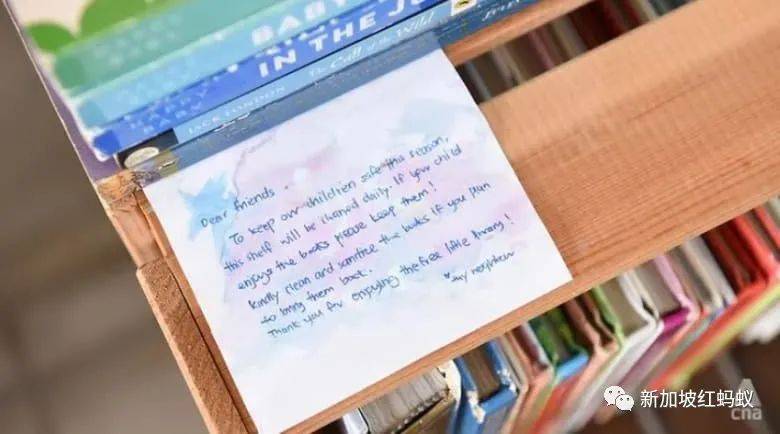 BABY
IN THE JU
The Call of the Wild
JACK LONDON
BABY
Dear friends,
To keep our children safe this season,
this shelf will be cleaned daily. If your child
enjoys the books please keep them!
Kindly clean and sanitize the books if you plan
to bring them back.
Thank you for enjoying the free little library!
♥ my neighbour
新加坡红蚂蚁
cna